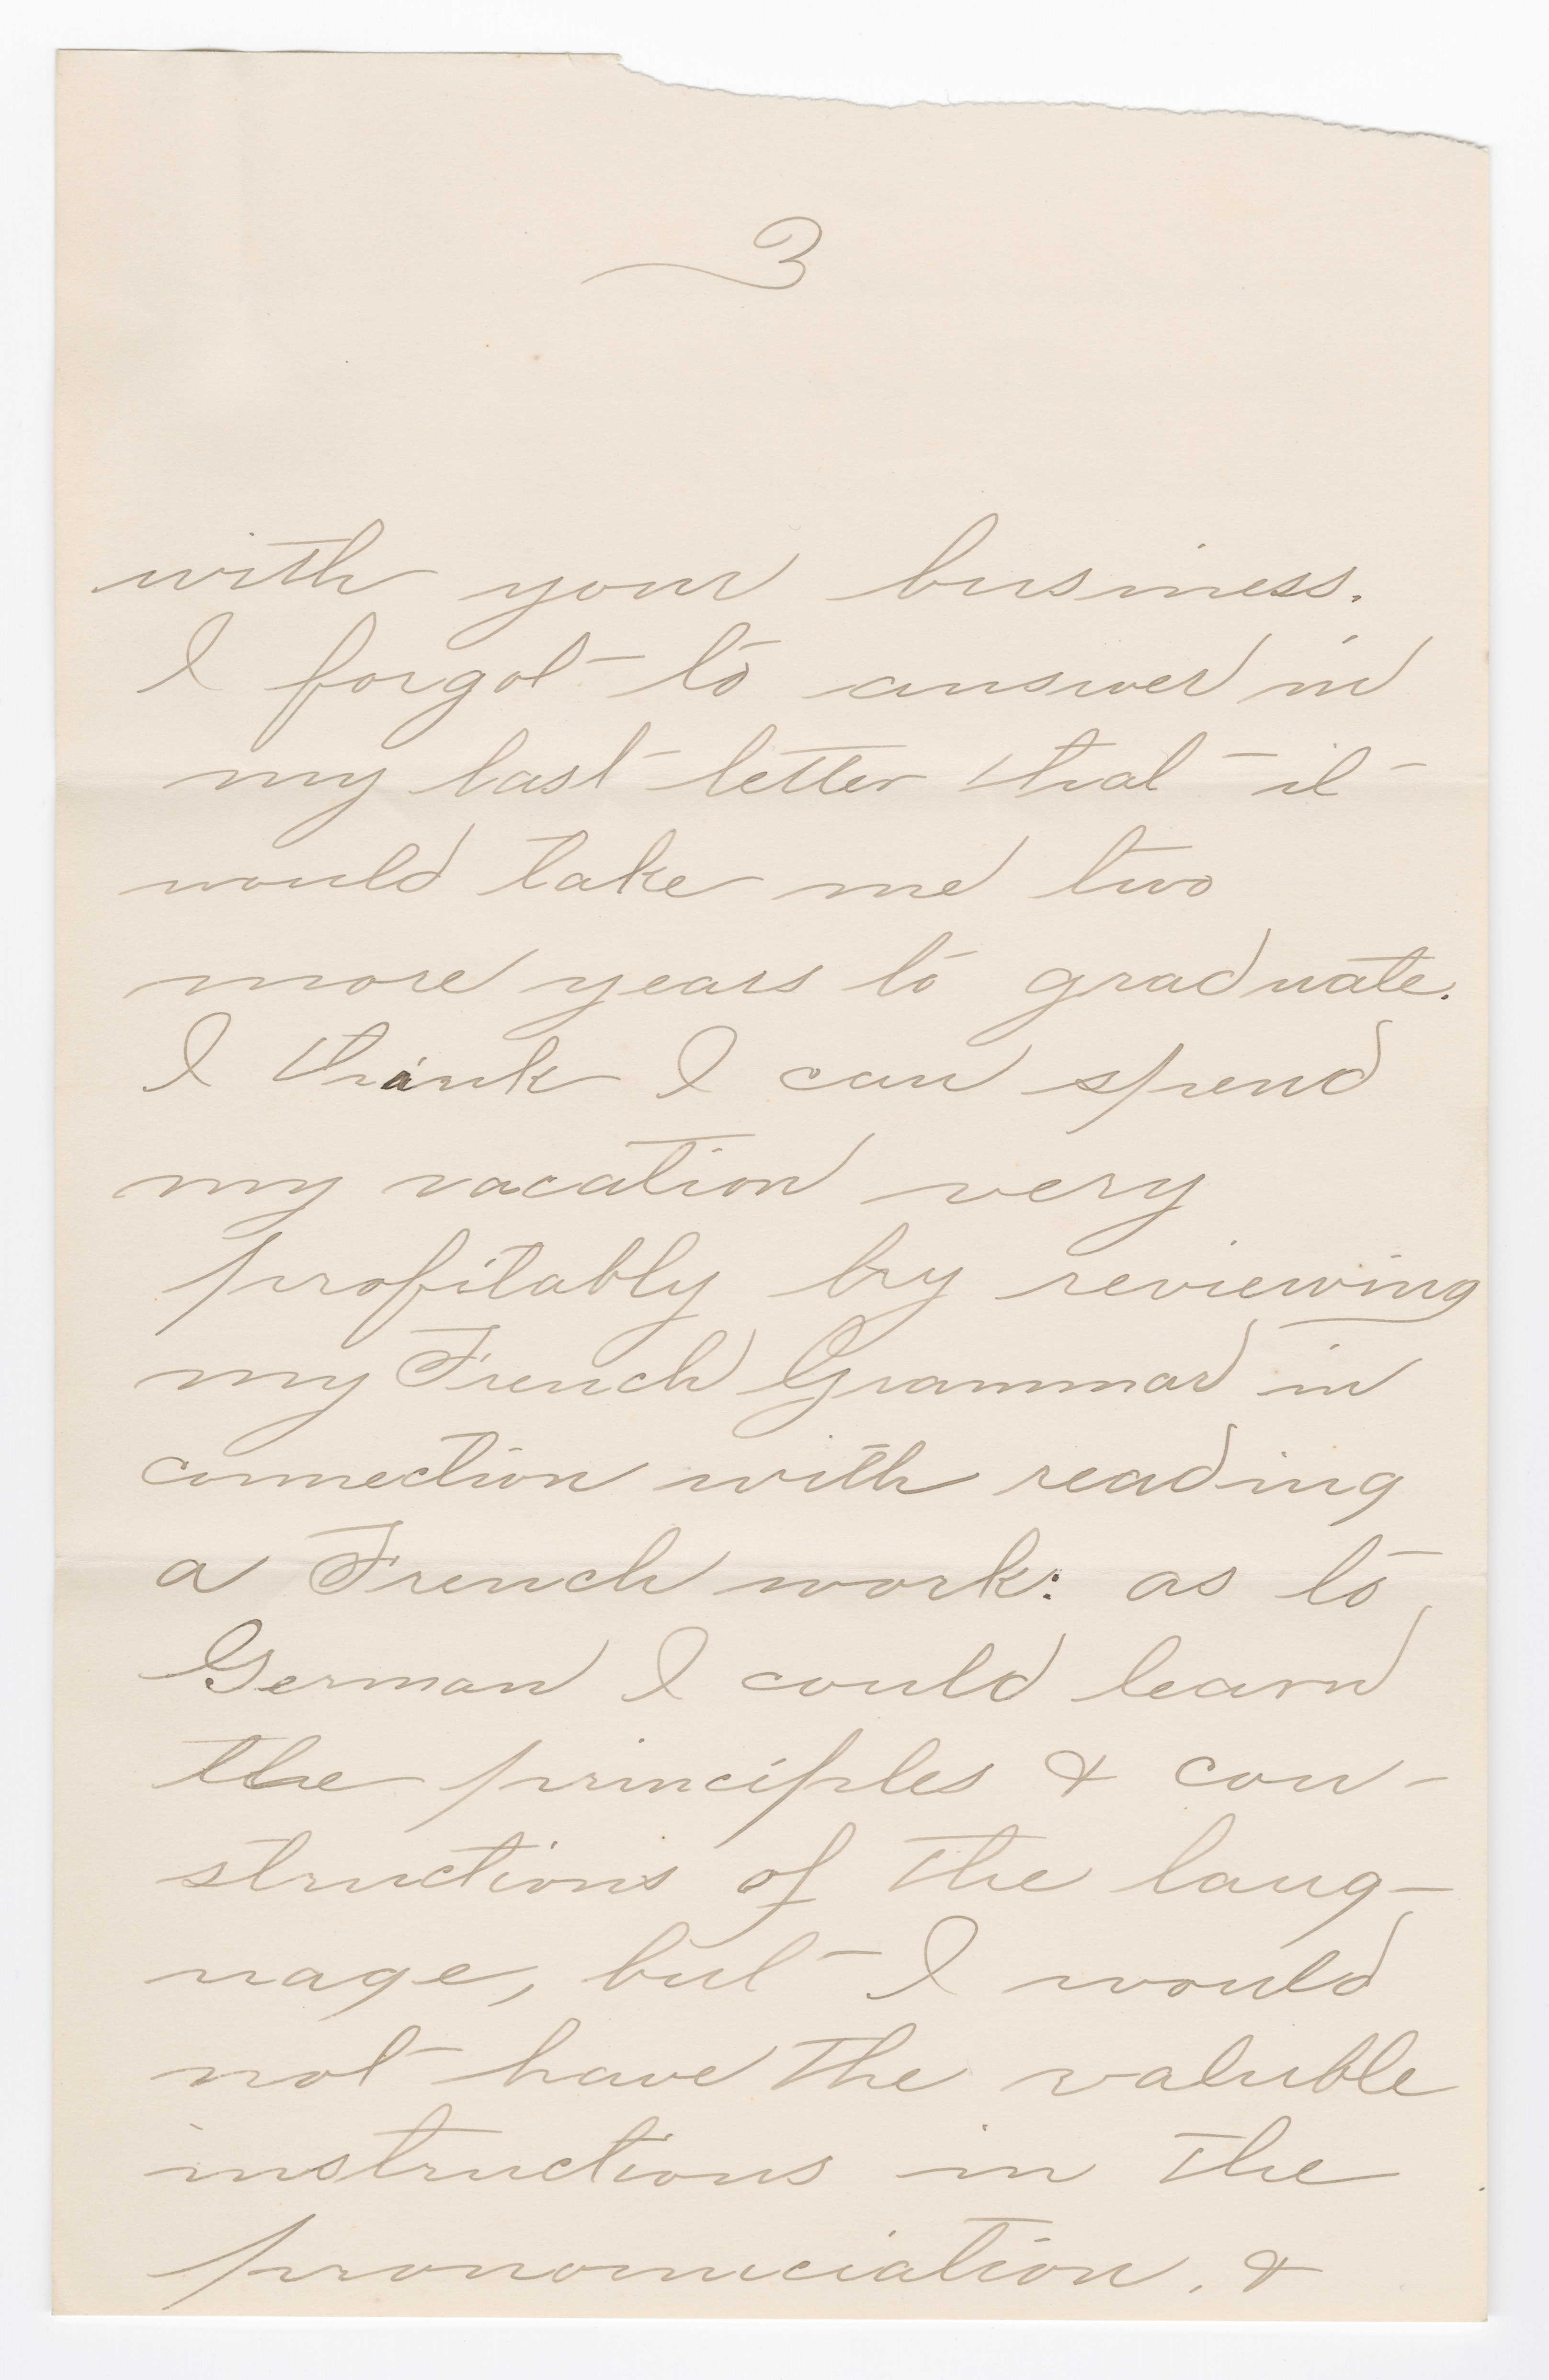 3
with your business.
I forgot to answer in
my last letter that it
would take me two
more years to graduate.
I think I can spend
my vacation very
profitably by reviewing
my French Grammar in
connection with reading
a French work: as to
German I could learn
the principles & con-
structions of the lang-
uage, but I would
not have the valuble
instructions in the
pronounciation, &